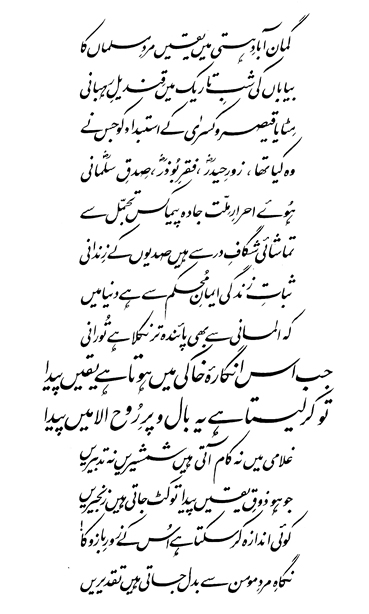 گماں آبادِ ہستی میں یقیں مردِ مسلماں کا
بیاباں کی شبِ تاریک میں قندیلِ رہبانی
مٹایا قیصر و کسریٰ کے استبداد کو جس نے
وہ کیا تھا، زورِ حیدرؓ، فقرِ بُوذرؓ، صدقِ سلمانیؓ
ہُوئے احرارِ ملّت جادہ پیما کس تجمّل سے
تماشائی شگافِ در سے ہیں صدیوں کے زِندانی
ثباتِ زندگی ایمانِ مُحکم سے ہے دنیا میں
کہ المانی سے بھی پائندہ تر نکلا ہے تُورانی
جب اس انگارۂ خاکی میں ہوتا ہے یقیں پیدا
تو کر لیتا ہے یہ بال و پرِ رُوح الامیں پیدا
غلامی میں نہ کام آتی ہیں شمشیریں نہ تدبیریں
جو ہو ذوقِ یقیں پیدا تو کٹ جاتی ہیں زنجیریں
کوئی اندازہ کر سکتا ہے اُس کے زورِ بازو کا!
نگاہِ مردِ مومن سے بدل جاتی ہیں تقدیریں